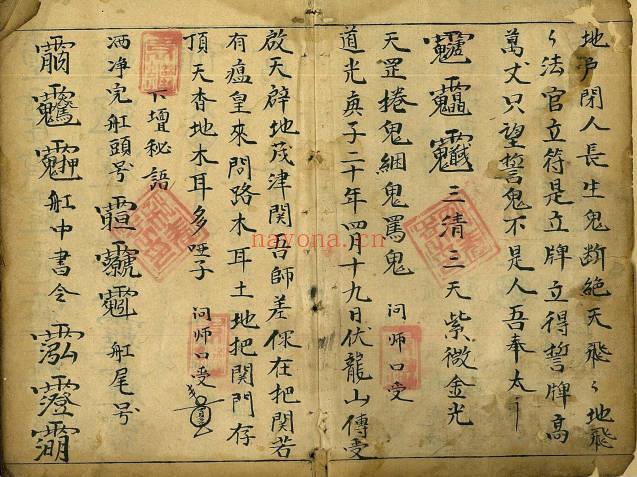 地户閉人長生鬼断絕天飛〻地飛
〻法官立符是立牌立得誓牌髙
萬丈只望誓鬼不是人吾奉太
三清三天紫微金光
天罡捲鬼綑鬼罵鬼 问师口受
道光庚子二十年四月十九日伏龍山傳受
啟天辟地茂津関吾師差保在把関若
有瘟皇來問路木耳土地把関門存
頂天杳地木耳多哑子 问师口受
下壇秘語
洒净完舡頭号 舡尾号
舡中書令
nayona.cn